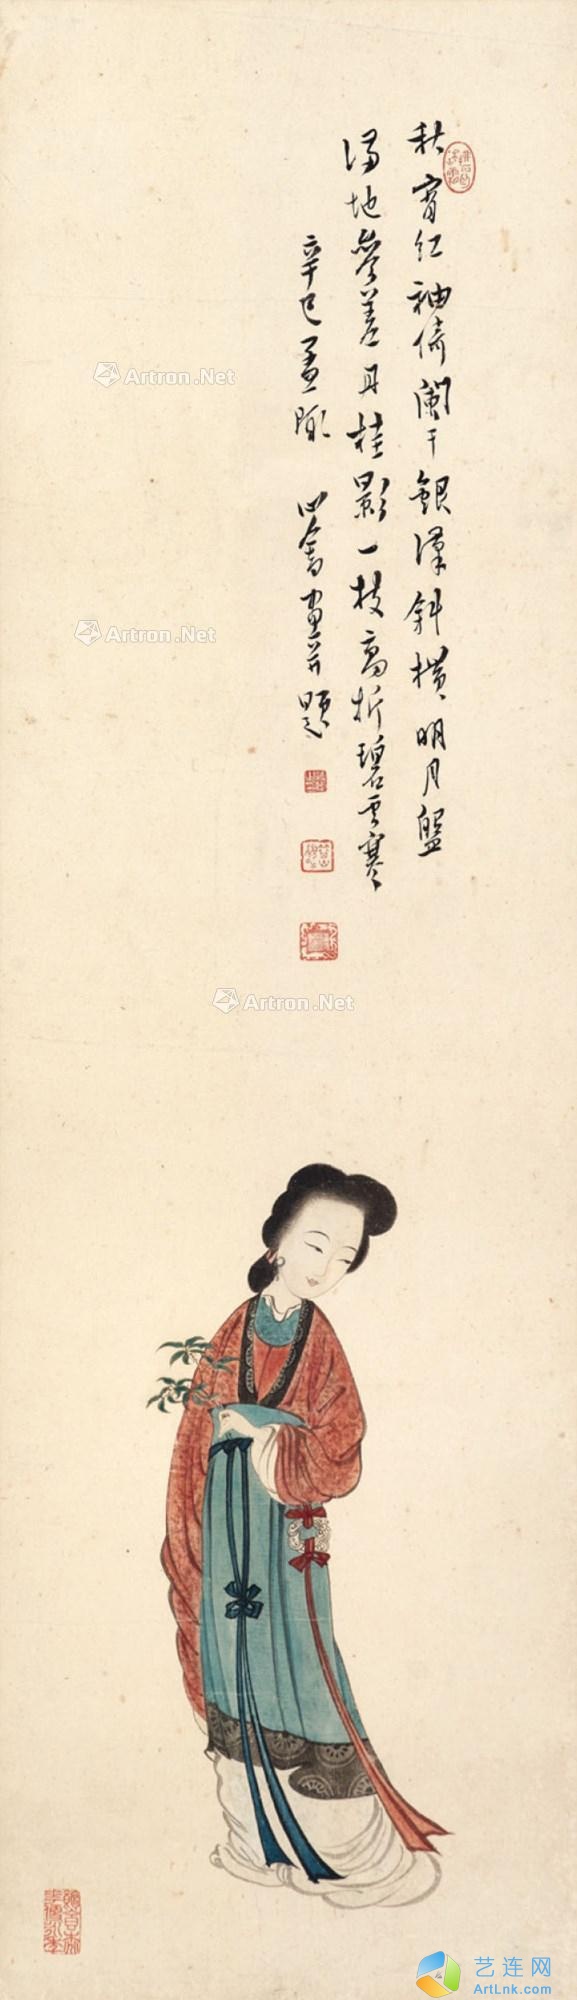 秋宵红袖倚阑干銀漢斜橫明月盤
滿地參差丹桂影一枝高折碧雲寒
辛巳孟陬 心畬畫并題
Artron.Net
Artron.Net
Artron.Net
艺连网
ArtLnk.com